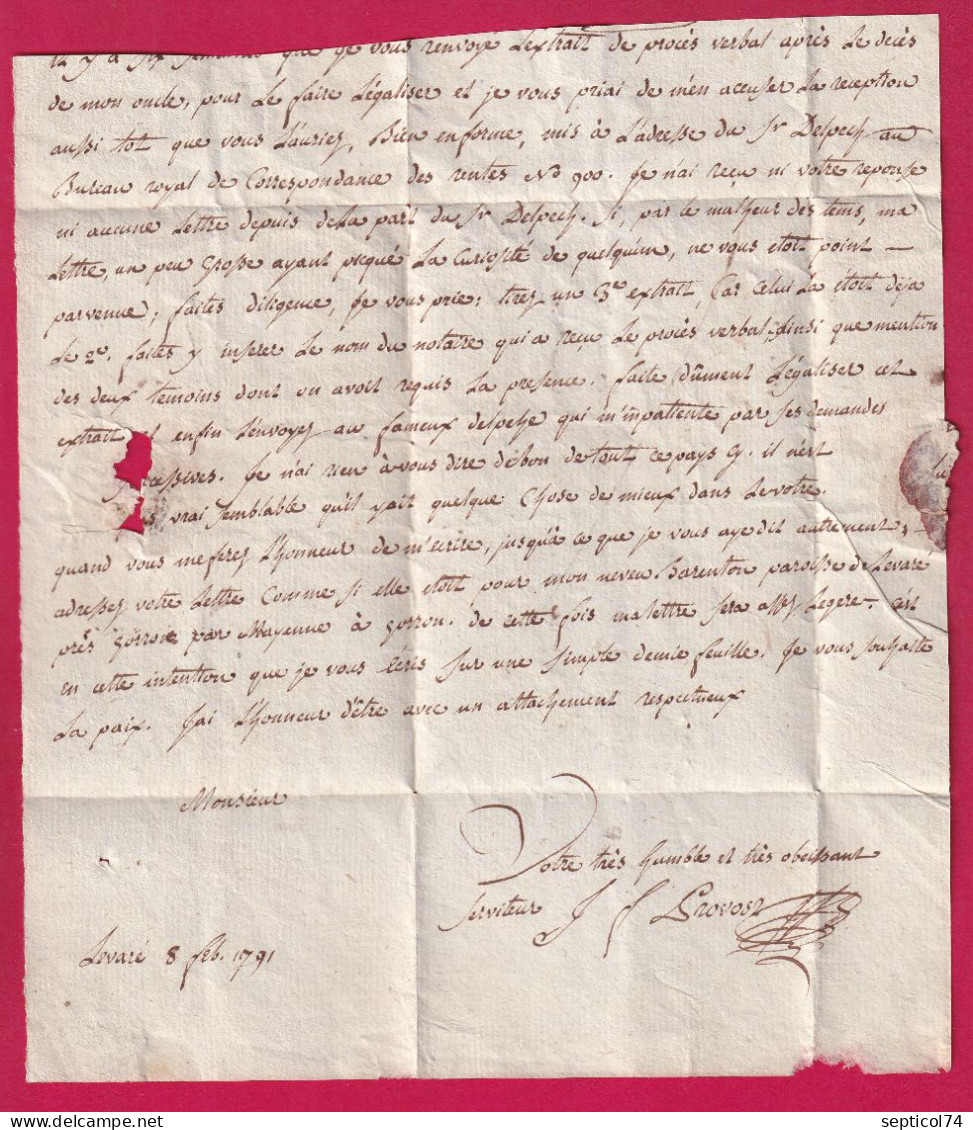 il y a six semaines que je vous renvoyé L'extrait de procès verbal après Le decès
de mon oncle, pour Le faire Légaliser et je vous priai de m'en accuser La reception
aussi tot que vous L'auriez, Bien en forme, mis à L'adresse du Sr Delpech au
Bureau royal de Correspondance des rentes No 900. Je n'ai reçu ni votre reponse
ni aucune Lettre depuis de La part du Sr Delpech. Si, par le malheur des tems, ma
Lettre, un peu Grosse ayant piqué La Curiosité de quelqu'un, ne vous etoit point —
parvenue; faites diligence, Je vous prie: tirez un 3e extrait Car Celui La étoit déja
Le 2e. faites y inserer Le nom du notaire qui a reçu Le procès verbal, ainsi que mention
des deux temoins dont on avoit requis La presence. faite dûment Légaliser cet
extrait et enfin L'envoyez au fameux delpech qui m'impatiente par ses demandes
successives. Je n'ai rien à vous dire de bon de tout ce pays Cy. il n'est
pas vrai semblable qu'il y ait quelque Chose de mieux dans Le votre.
quand vous me ferez L'honneur de m'écrire, jusqu'à ce que je vous aye dit autrement,
adressez votre Lettre Comme si elle étoit pour mon neveu Barenton paroisse de Levaré
près Gorron par Mayenne à Gorron. de cette fois ma lettre sera assez Legere. c'est
en cette intention que je vous Ecris sur une simple demie feuille. Je vous souhaite
La paix. J'ai L'honneur d'être avec un attachement respectueux
Monsieur
Votre très humble et très obeissant
serviteur J f Provost
Levaré 8 feb. 1791
septicol74